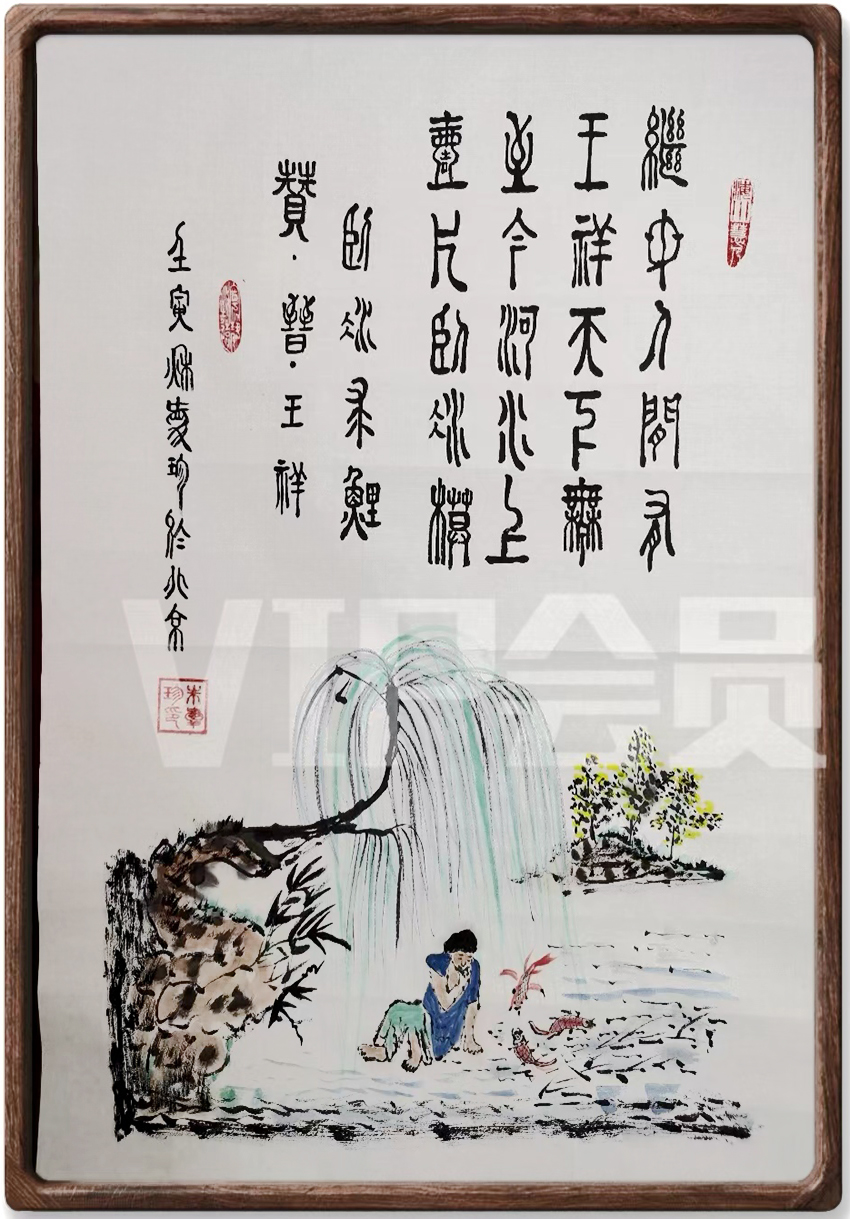 繼母人間有
王祥天下無
至今河水上
壹片臥冰模
臥冰求鯉
贊·晉·王祥
壬寅秌慶珍於北京
VIP会员